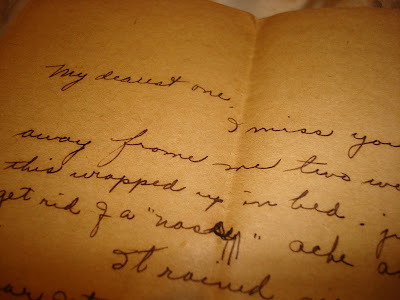 My dearest one,
I miss you
away frome me two we
this wrapped up in bed. ju
get rid of a "nossy" ache a
It rained